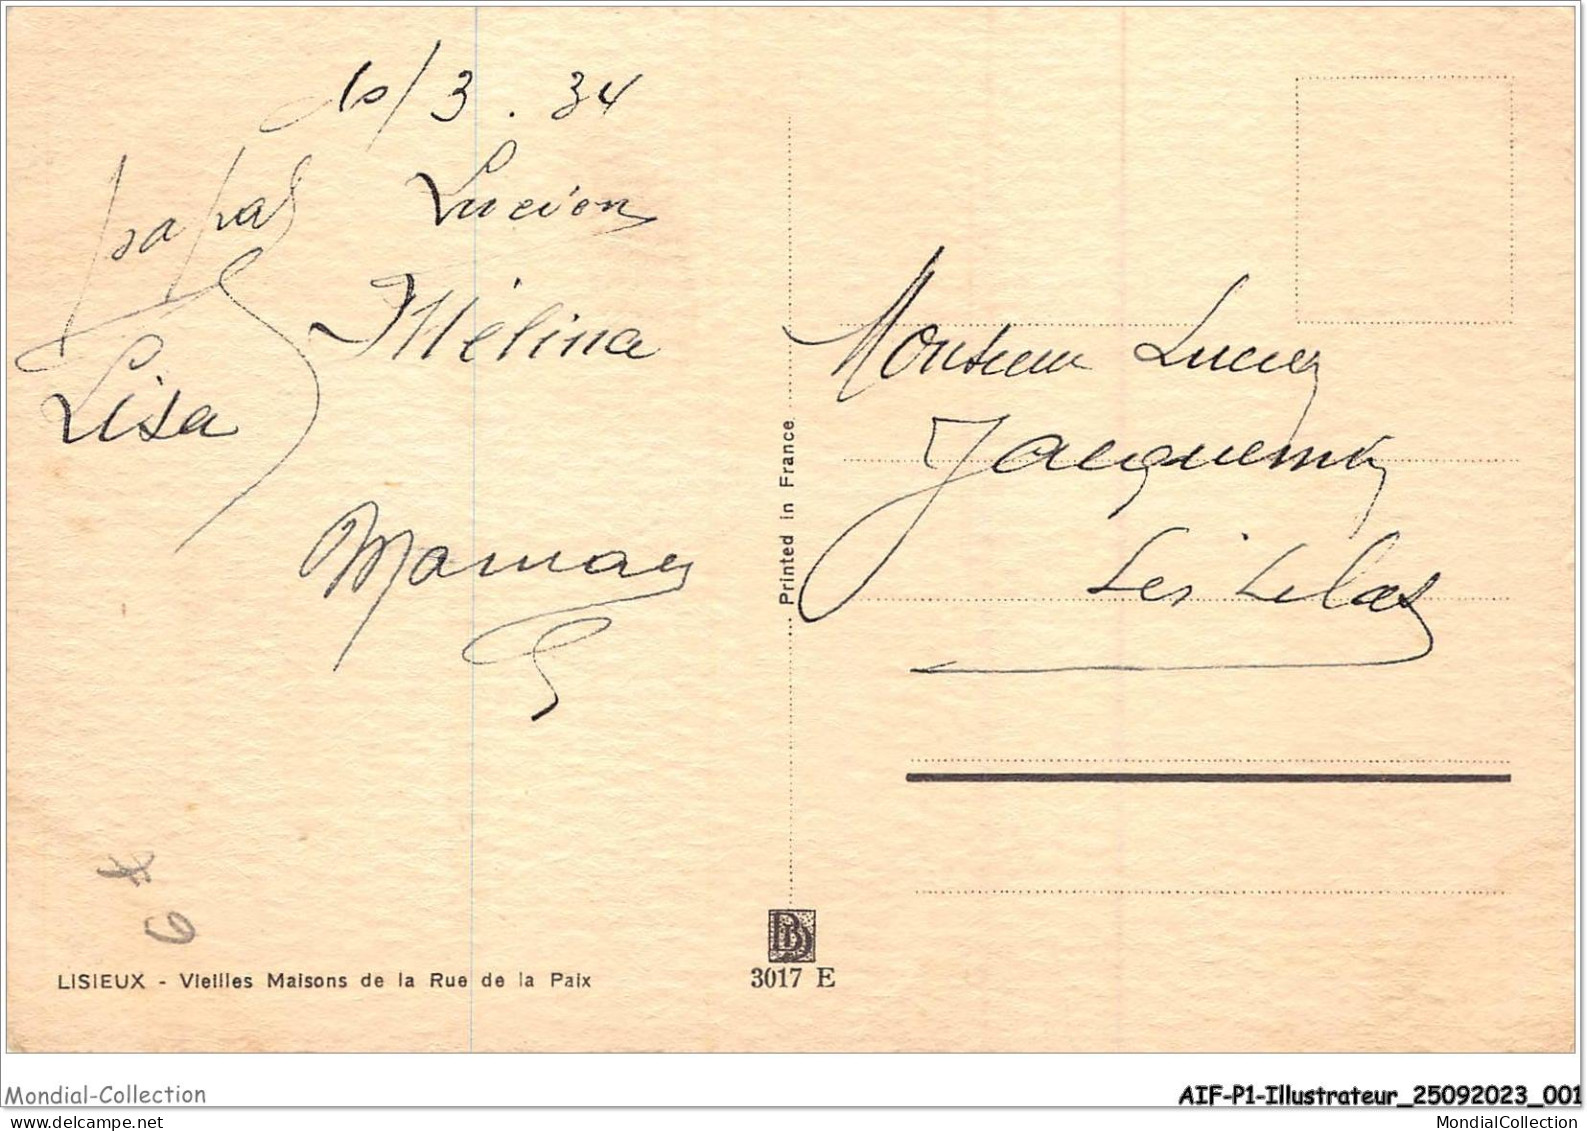 10/3.34
papa
Lucien
Mélina
Lisa
Maman
Monsieur Lucien
Jacquemin
Les Lilas
Printed in France
LISIEUX - Vieilles Maisons de la Rue de la Paix
BD
3017 E
Mondial-Collection
AIF-P1-Illustrateur_25092023_001
www.delcampe.net
MondialCollection